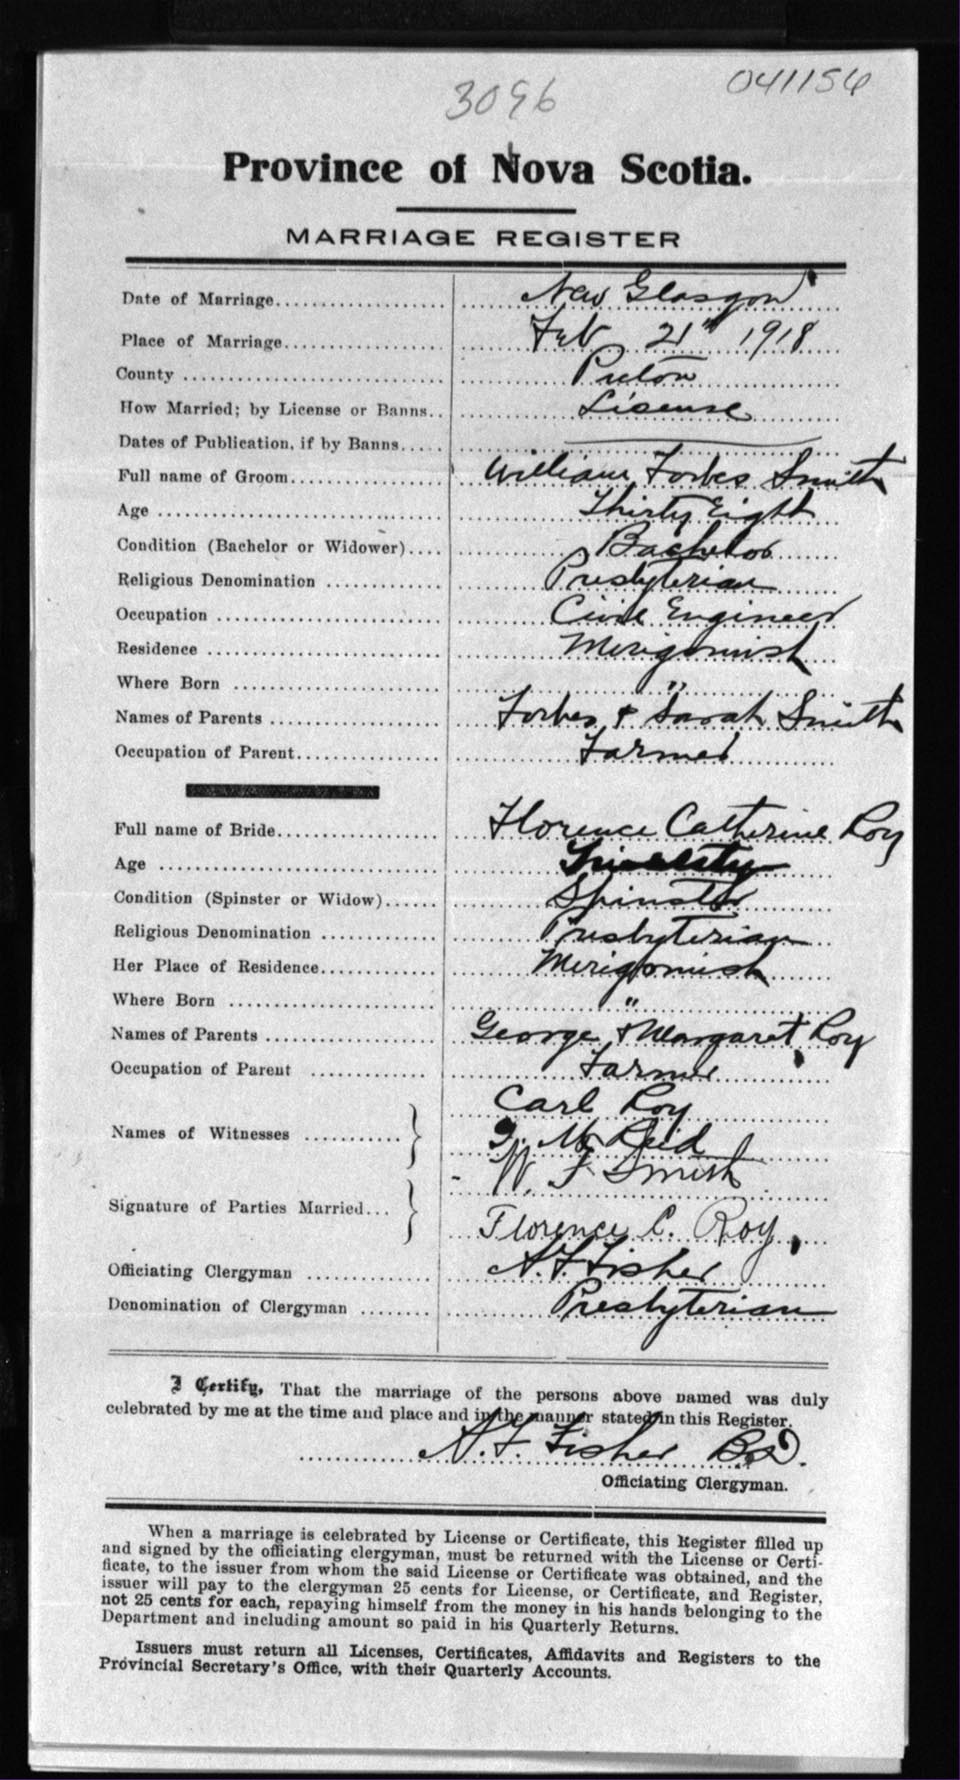 3096
041156
Province of Nova Scotia.
MARRIAGE REGISTER
Date of Marriage New Glasgow
Place of Marriage Feb 21st 1918
County Pictou
How Married; by License or Banns License
Dates of Publication, if by Banns
Full name of Groom William Forbes Smith
Age Thirty Eight
Condition (Bachelor or Widower) Bachelor
Religious Denomination Presbyterian
Occupation Civil Engineer
Residence Merigomish
Where Born "
Names of Parents Forbes & Sarah Smith
Occupation of Parent Farmer
Full name of Bride Florence Catherine Roy
Age
Condition (Spinster or Widow) Spinster
Religious Denomination Presbyterian
Her Place of Residence Merigomish
Where Born "
Names of Parents George & Margaret Roy
Occupation of Parent Farmer
Carl Roy
Names of Witnesses
Reid
W. F Smith
Signature of Parties Married
Florence C. Roy
Officiating Clergyman A. F. Fisher
Denomination of Clergyman Presbyterian
I Certify, That the marriage of the persons above named was duly
celebrated by me at the time and place and in the manner stated in this Register.
A. F. Fisher B.D.
Officiating Clergyman.
When a marriage is celebrated by License or Certificate, this Register filled up
and signed by the officiating clergyman, must be returned with the License or Certi-
ficate, to the issuer from whom the said License or Certificate was obtained, and the
issuer will pay to the clergyman 25 cents for License, or Certificate, and Register,
not 25 cents for each, repaying himself from the money in his hands belonging to the
Department and including amount so paid in his Quarterly Returns.
Issuers must return all Licenses, Certificates, Affidavits and Registers to the
Provincial Secretary's Office, with their Quarterly Accounts.